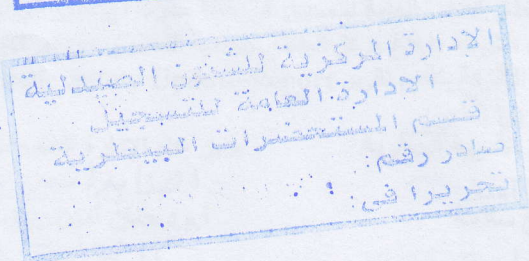 الادارة المركزية للشئون الصيدلية
الادارة العامة للتسجيل
قسم المستحضرات البيطرية
صادر رقم:
تحريرا فى: